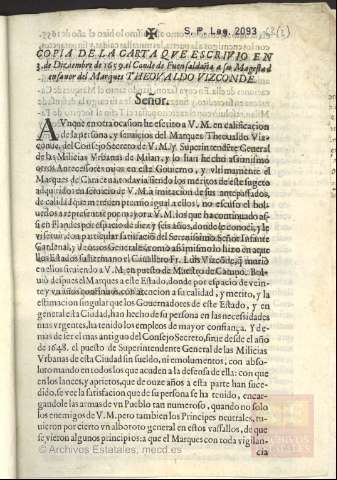 S. P. Leg. 2093
COPIA DE LA CARTA QVE ESCRIVIO EN
3. de Diziembre de 1659. el Conde de Fuensaldaña a su Magestad
en favor del Marques THEOVALDO VIZCONDE.
Señor.
AVnque en otra ocasion he escrito a V.M. en calificacion
de la persona, y seruicios del Marques Theoualdo Viz
conde, del Consejo Secreto de V.M. y Superintendẽte General
de las Milicias Vrbanas de Milan, y lo han hecho assimismo
otros Antecessores mios en este Gouierno, y vltimamente el
Marques de Caracena, todauia siendo los meritos de este sugeto
adquiridos en seruicio de V.M. à imitacion de sus antepassados,
de calidad que merecen premio igual a ellos, no escuso el bol-
uerlos a representar por mayor a V.M. los que ha continuado as-
si en Flandes por espacio de diez y seis años, donde le conocì, y le
vi estimar con particular satisfacion del Serenissimo Señor Infante
Cardenal, y de otros Generales, como assimismo lo hizo en aque
llos Estados su hermano el Cauallero Fr. Luis Vizcõde, q̃ muriò
en ellos siruiendo a V.M. en puesto de Maestro de Campo. Bol-
uiò despues el Marques a este Estado, donde por espacio de vein-
te y vn años continuos, con atencion a su calidad, y merito, y la
estimacion singular que los Gouernadores de este Estado, y en
general esta Ciudad, han hecho de su persona en las necessidades
mas vrgentes, ha tenido los empleos de mayor confiança. Y de-
mas de ser el mas antiguo del Consejo Secreto, sirue desde el año
de 1648. el puesto de Superintendente General de las Milicias
Vrbanas de esta Ciudad sin sueldo, ni emolumentos, con abso-
luto mando en todos los que acuden a la defensa de ella: con que
en los lances, y aprietos, que de onze años a esta parte han suce-
dido, se vee la satisfacion que de su persona se ha tenido, encar-
gandole las armas de vn Pueblo tan numeroso, quando no solo
los enemigos de V.M. pero tambien los Principes neutrales, tu-
uieron por cierto vn alboroto general en estos vassallos, de que
se vieron algunos principios: a que el Marques con toda vigilan-
cia
© Archivos Estatales, mecd.es
ARCHIVOS
ESTATALES